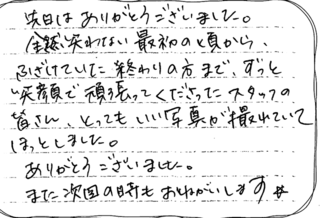 先日はありがとうございました。
全然笑わない最初の頃から、
ふざけていた終わりの方まで、ずっと
笑顔で頑張ってくださったスタッフの
皆さん、とってもいい写真が撮れていて
ほっとしました。
ありがとうございました。
また次回の時もおねがいします